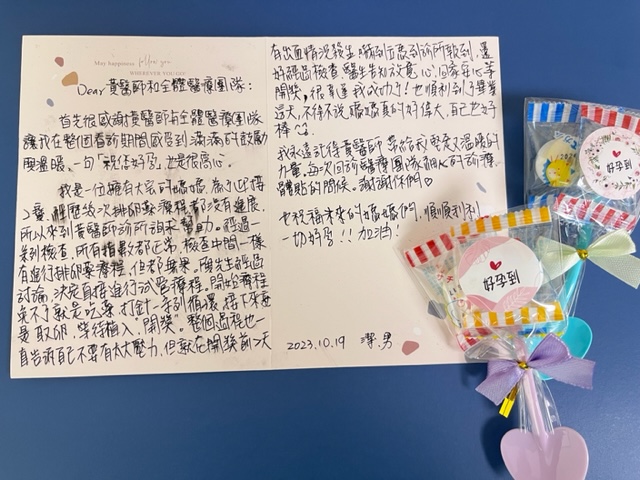 May happiness follow you
WHEREVER YOU GO
Dear 黃醫師和全體醫療團隊：
首先很感謝黃醫師与全體醫療團隊
讓我在整個看診期間感受到滿滿的鼓勵
與溫暖，一句「祝你好孕」也是很窩心。
我是一位擁有大寶的媽媽，為了迎接
2寶，經歷幾次排卵藥療程都沒有進展，
所以來到黃醫師診所尋求幫助。經過一
系列檢查，所有指數都正常，檢查中間一樣
有進行排卵藥療程，但都無果，與先生經過
討論，決定直接進行試管療程。開始療程
免不了就是吃藥、打針一系列循環，接下來要
取卵，等待植入、開獎。整個過程也一
直告訴自己不要有太大壓力，但就在開獎前2天
有出血情況發生，嚇到立馬到診所報到，還
好經過檢查，醫生告知放寬心，回家安心等
開獎，很幸運我成功了！也順利到了畢業
這天，不得不說媽媽真的好偉大，自己也好
棒
我永遠記得黃醫師帶給我堅定又溫暖的
力量，每次回診醫療團隊細心的診療、
體貼的問候。謝謝你們♡
也祝福未來的媽媽們，順順利利
一切好孕!! 加油!
2023.10.19 潔.男
好孕到
好孕到